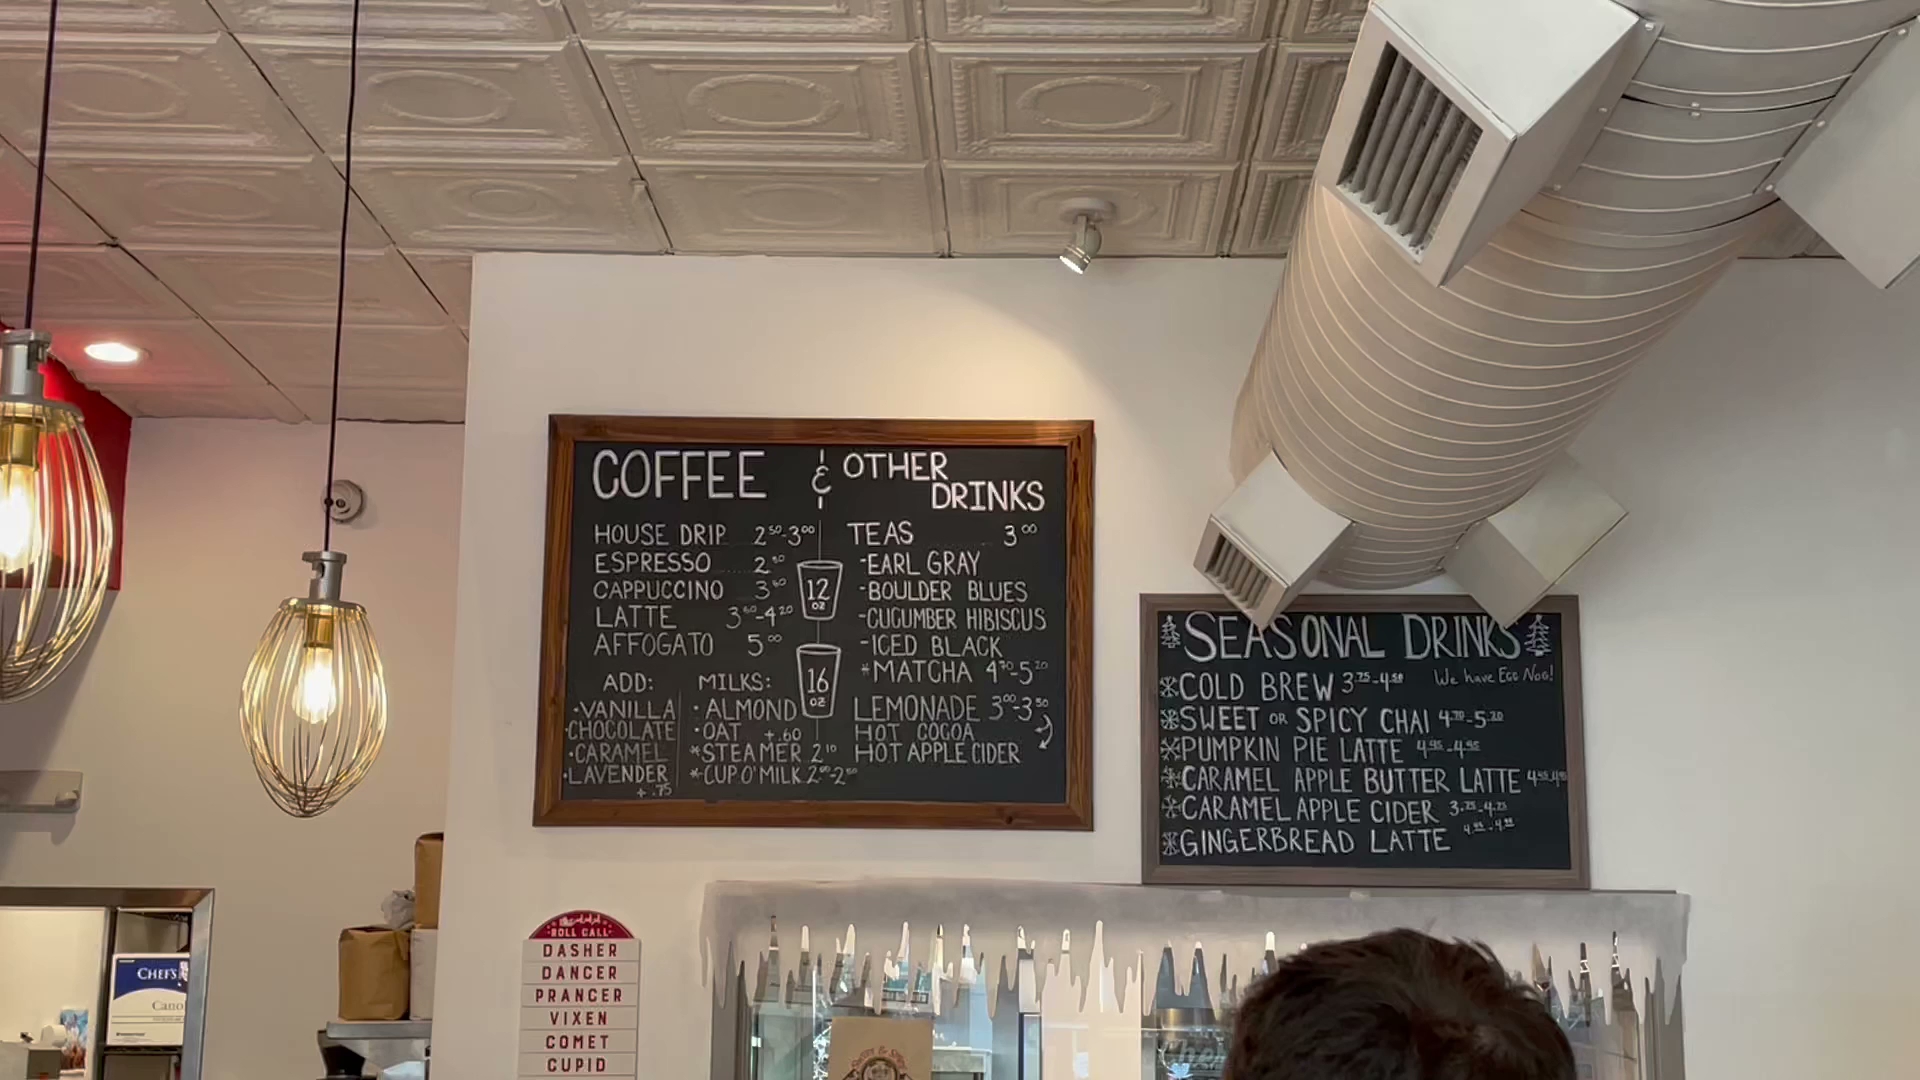 COFFEE & OTHER DRINKS
HOUSE DRIP 2.50-3.00
ESPRESSO 2.50
CAPPUCCINO 3.60
LATTE 3.60-4.20
AFFOGATO 5.00
ADD:
•VANILLA
•CHOCOLATE
•CARAMEL
•LAVENDER
+.75
MILKS:
•ALMOND
•OAT +.60
*STEAMER 2.10
*CUP O'MILK
12 OZ
16 OZ
TEAS 3.00
-EARL GRAY
-BOULDER BLUES
-CUCUMBER HIBISCUS
-ICED BLACK
*MATCHA 4.70-5.20
LEMONADE 3.00-3.50
HOT COCOA
HOT APPLE CIDER
SEASONAL DRINKS
We have EGG NOG!
COLD BREW 3.75-4.50
SWEET OR SPICY CHAI 4.70-5.20
PUMPKIN PIE LATTE
CARAMEL APPLE BUTTER LATTE
CARAMEL APPLE CIDER 3.75-4.75
GINGERBREAD LATTE
ROLL CALL
DASHER
DANCER
PRANCER
VIXEN
COMET
CUPID
CHEF'S